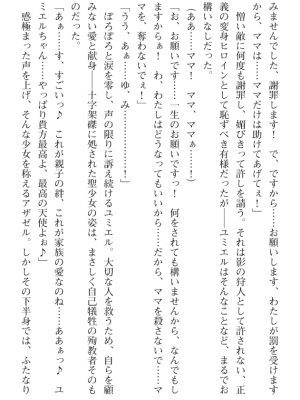 みませんでした、謝罪します！　で、ですから……お願いします、わたしが罰を受けます
から、ママは……ママだけは助けてあげてぇ！」
　憎い敵に何度も謝罪し、媚びきって許しを請う。それは影の狩人として許されない、正
義の変身ヒロインとして恥ずべき有様だったが、――ユミエルはそんなことなど、まるでお
構いなしだった。
（ああ……ママ！　ママ、ママぁ……！）
「お、お願いですっ！　一生のお願いですっ！　何をされても構いませんから、なんでもし
ますからぁ！　わ、わたしはどうなってもいいから……だから、ママを殺さないで……マ
マを、奪わないでぇ！」
「うう、あぁ……ゆ、み……――！」
　ぽろぽろと涙を零し、声の限りに訴え続けるユミエル。大切な人を救うため、自らを顧
みない愛と献身――十字架磔に処された聖少女の姿は、まさしく自己犠牲の殉教者そのも
のだった。
「ああ……す、すごいっ♪　これが親子の絆、これが家族の愛なのね……ああぁっ♪　ユ
ミエルちゃん……やっぱり貴方最高よ、最高の天使よぉ♪」
　感極まった声を上げ、そんな少女を称えるアザゼル。しかしその下半身では、ふたなり